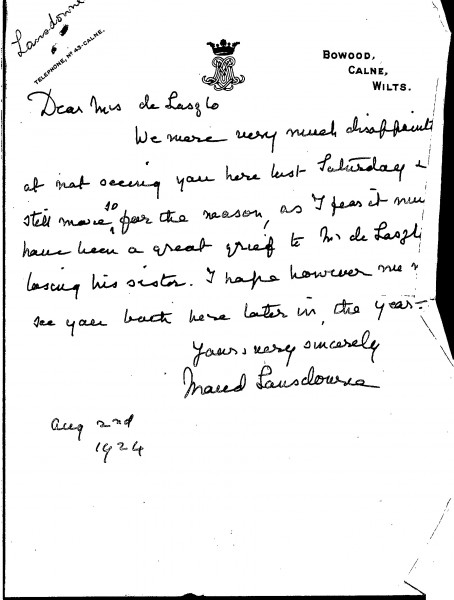 Lansdowne
TELEPHONE, Nº 43-CALNE.
BOWOOD,
CALNE,
WILTS.
Dear Mrs de Laszlo
We were very much disappoint
at not seeing you here last Saturday &
still more so for the reason, as I fear it mu
have been a great grief to Mr de Laszl
losing his sister. I hope however we m
see you both here later in the year.
Yours very sincerely
Maud Lansdowne
Aug 2nd
1924